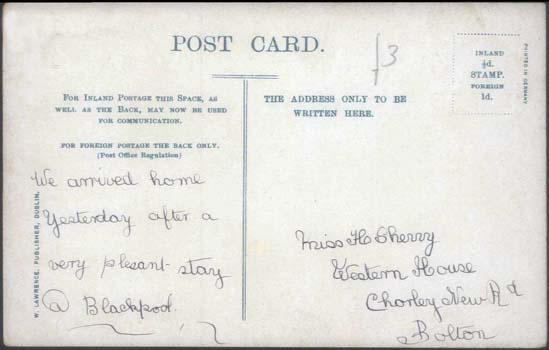 POST CARD.
13
INLAND
½d.
STAMP.
FOREIGN
1d.
PRINTED IN GERMANY
FOR INLAND POSTAGE THIS SPACE, AS
WELL AS THE BACK, MAY NOW BE USED
FOR COMMUNICATION.
FOR FOREIGN POSTAGE THE BACK ONLY.
(Post Office Regulation)
THE ADDRESS ONLY TO BE
WRITTEN HERE.
W. LAWRENCE, PUBLISHER, DUBLIN.
We arrived home
Yesterday after a
very plesant stay
@ Blackpool.
Miss H Cherry
Western House
Chorley New Rd
Bolton